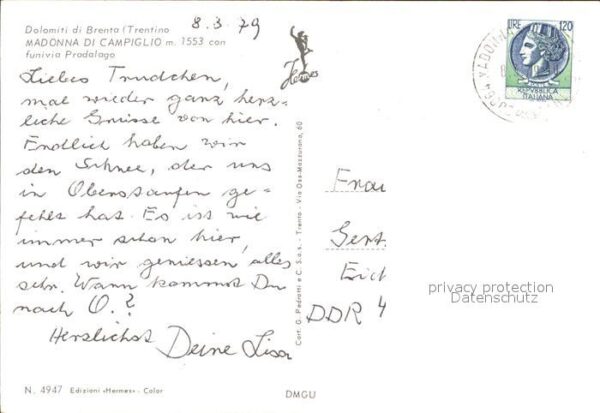 Dolomiti di Brenta (Trentino
MADONNA DI CAMPIGLIO m. 1553 con
funivia Pradalago
8.3.79
Hermes
LIRE 120
REPVBBLICA
ITALIANA
Liebes Trudchen,
mal wieder ganz herz-
liche Grüsse von hier.
Endlich haben wir
den Schnee, der uns
in Oberstaufen ge-
fehlt hat. Es ist wie
immer schön hier,
und wir geniessen alles
sehr. Wann kommst Du
nach O.?
Herzlichst Deine Lisa
Cart. G. Pedrotti e C. S.a.s. - Trento - Via Oss-Mazzurana, 60
Frau
Gert
Erich
DDR 4
privacy protection
Datenschutz
N. 4947 Edizioni «Hermes» - Color
DMGU